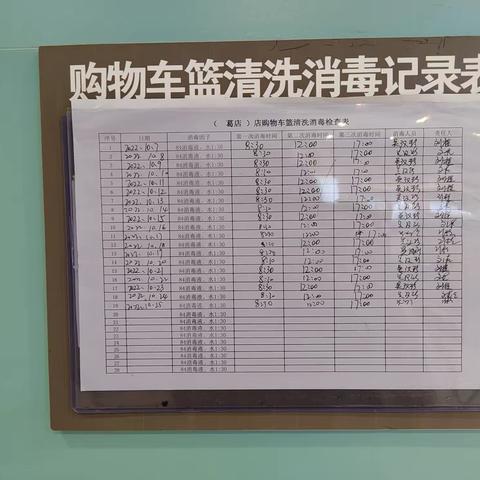 购物车篮清洗消毒记录表
（ 葛店 ）店购物车篮清洗消毒检查表
序号 日期 消毒因子 第一次消毒时间 第二次消毒时间 第三次消毒时间 消毒人员 责任人
1 2022.10.7 84消毒液、水1:30 8:30 12:00 17:00
2 2022.10.8 84消毒液、水1:30 8:30 12:00 17:00
3 2022.10.9 84消毒液、水1:30 8:30 12:00 17:00
4 2022.10.10 84消毒液、水1:30 8:30 12:00 17:00
5 2022.10.11 84消毒液、水1:30 8:30 12:00 17:00
6 2022.10.12 84消毒液、水1:30 8:30 12:00 17:00
7 2022.10.13 84消毒液、水1:30 8:30 12:00 17:00
8 2022.10.14 84消毒液、水1:30 8:30 12:00 17:00
9 2022.10.15 84消毒液、水1:30 8:30 12:00 17:00
10 2022.10.16 84消毒液、水1:30 8:30 12:00 17:00
11 2022.10.17 84消毒液、水1:30 8:30 12:00 17:00
12 2022.10.18 84消毒液、水1:30 8:30 12:00 17:00
13 2022.10.19 84消毒液、水1:30 8:30 12:00 17:00
14 2022.10.20 84消毒液、水1:30 8:30 12:00 17:00
15 2022.10.21 84消毒液、水1:30 8:30 12:00 17:00
16 2022.10.22 84消毒液、水1:30 8:30 12:00 17:00
17 2022.10.23 84消毒液、水1:30 8:30 12:00 17:00
18 2022.10.24 84消毒液、水1:30 8:30 12:00 17:00
19 2022.10.25 84消毒液、水1:30 8:30 12:00 17:00
20 84消毒液、水1:30
21 84消毒液、水1:30
22 84消毒液、水1:30
23 84消毒液、水1:30
24 84消毒液、水1:30
25 84消毒液、水1:30
26 84消毒液、水1:30
27 84消毒液、水1:30
28 84消毒液、水1:30